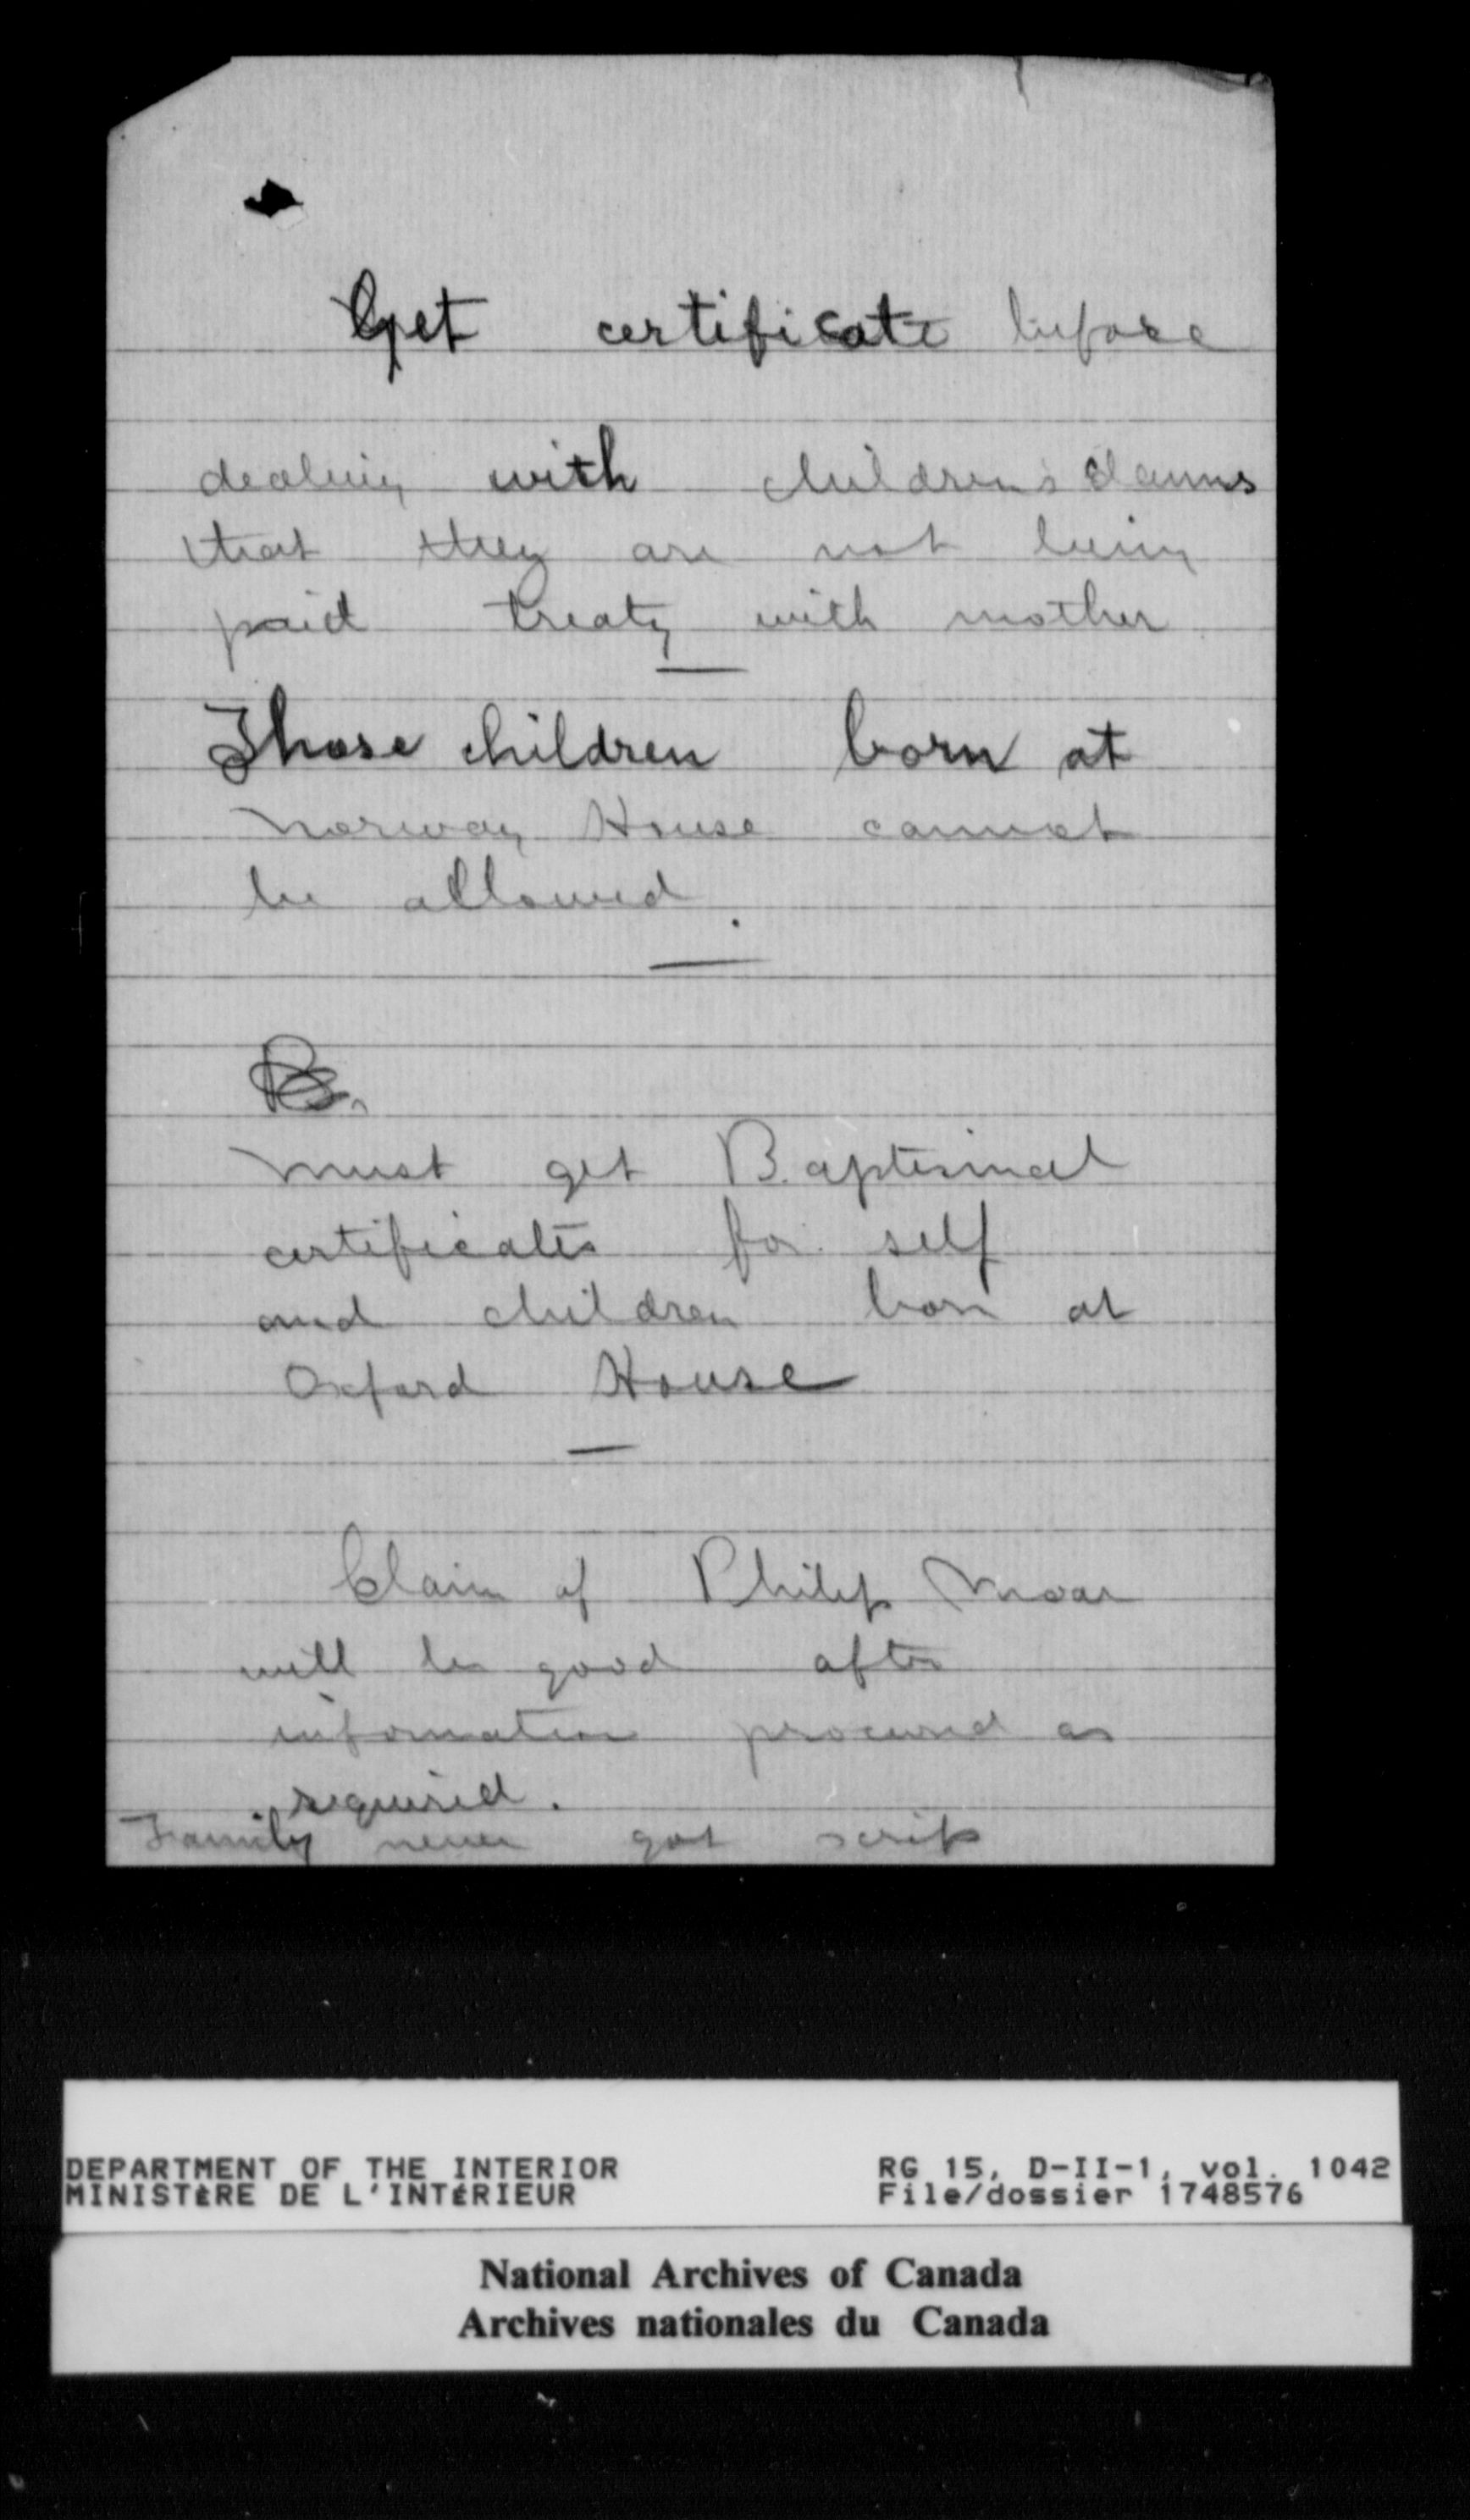 Get certificate before
dealing with children's claims
that they are not being
paid treaty with mother
Those children born at
Norway House cannot
be allowed.
Must get Baptismal
certificates for self
and children born at
Oxford House
Claim of Philip Moar
will be good after
information procured as
required.
Family never got scrip
DEPARTMENT OF THE INTERIOR
MINISTÈRE DE L'INTÉRIEUR
RG 15, D-II-1, vol. 1042
File/dossier 1748576
National Archives of Canada
Archives nationales du Canada